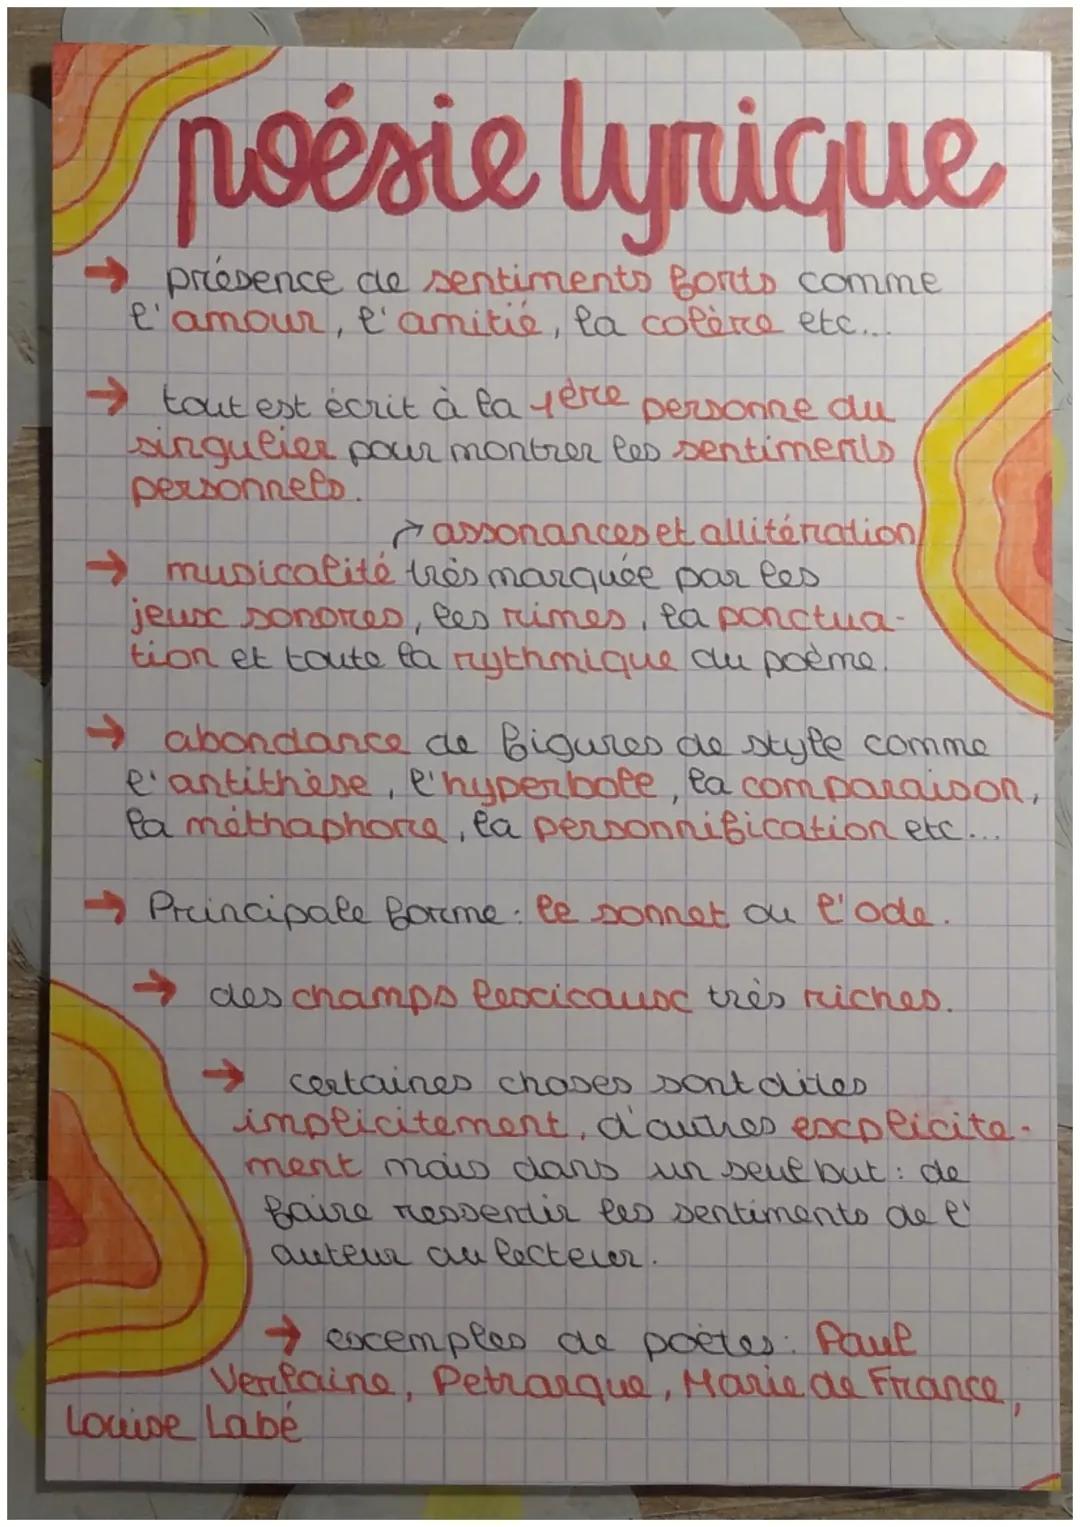 poésie lyrique
→ présence de sentiments forts comme
l'amour, l'amitié, la colère etc...
→ tout est écrit à la 1ère personne du
singulier pour montrer les sentiments
personnels.
↗ assonances et allitération
→ musicalité très marquée par les
jeux sonores, les rimes, la ponctua-
tion et toute la rythmique du poème.
→ abondance de figures de style comme
l'antithèse, l'hyperbole, la comparaison,
la méthaphore, la personnification etc...
→ Principale forme : le sonnet ou l'ode.
→ des champs lexicaux très riches.
→ certaines choses sont dites
implicitement, d'autres explicite-
ment mais dans un seul but : de
faire ressentir les sentiments de l'
auteur au lecteur.
→ exemples de poètes : Paul
Verlaine, Petrarque, Marie de France,
Louise Labé